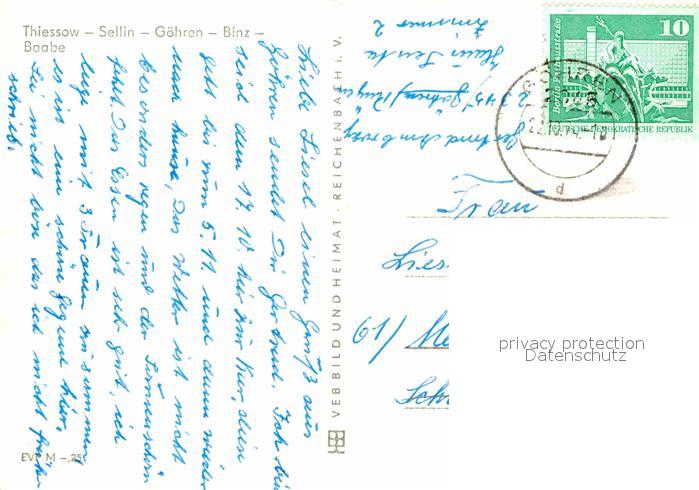 Thiessow – Sellin – Göhren – Binz –
Baabe
Liebe Liesel einen Gruß aus
Göhren sendet Dir Gertrud. Ich bin
seid dem 17.10 hier zur Kur, sie
geht bis zum 5.11. und dann wieder
nach hause, Das Wetter ist nicht
besonders regen und der Sonnenschein
fehlt Das Essen ist sehr gut, ich
liege mit 3 Frauen zusammen
es ist eine schöne Gegend hier,
Sei nicht böse das ich nicht früher
schrieb.
EVP M –,25
VEB BILD UND HEIMAT · REICHENBACH I. V.
Gertrud
2345 Göhren/Rügen
Haus
Zimmer 2
Berlin, Rathausstraße
10
DEUTSCHE DEMOKRATISCHE REPUBLIK
GÖHREN
d
Frau
Lies
61/ Me
Sch
privacy protection
Datenschutz